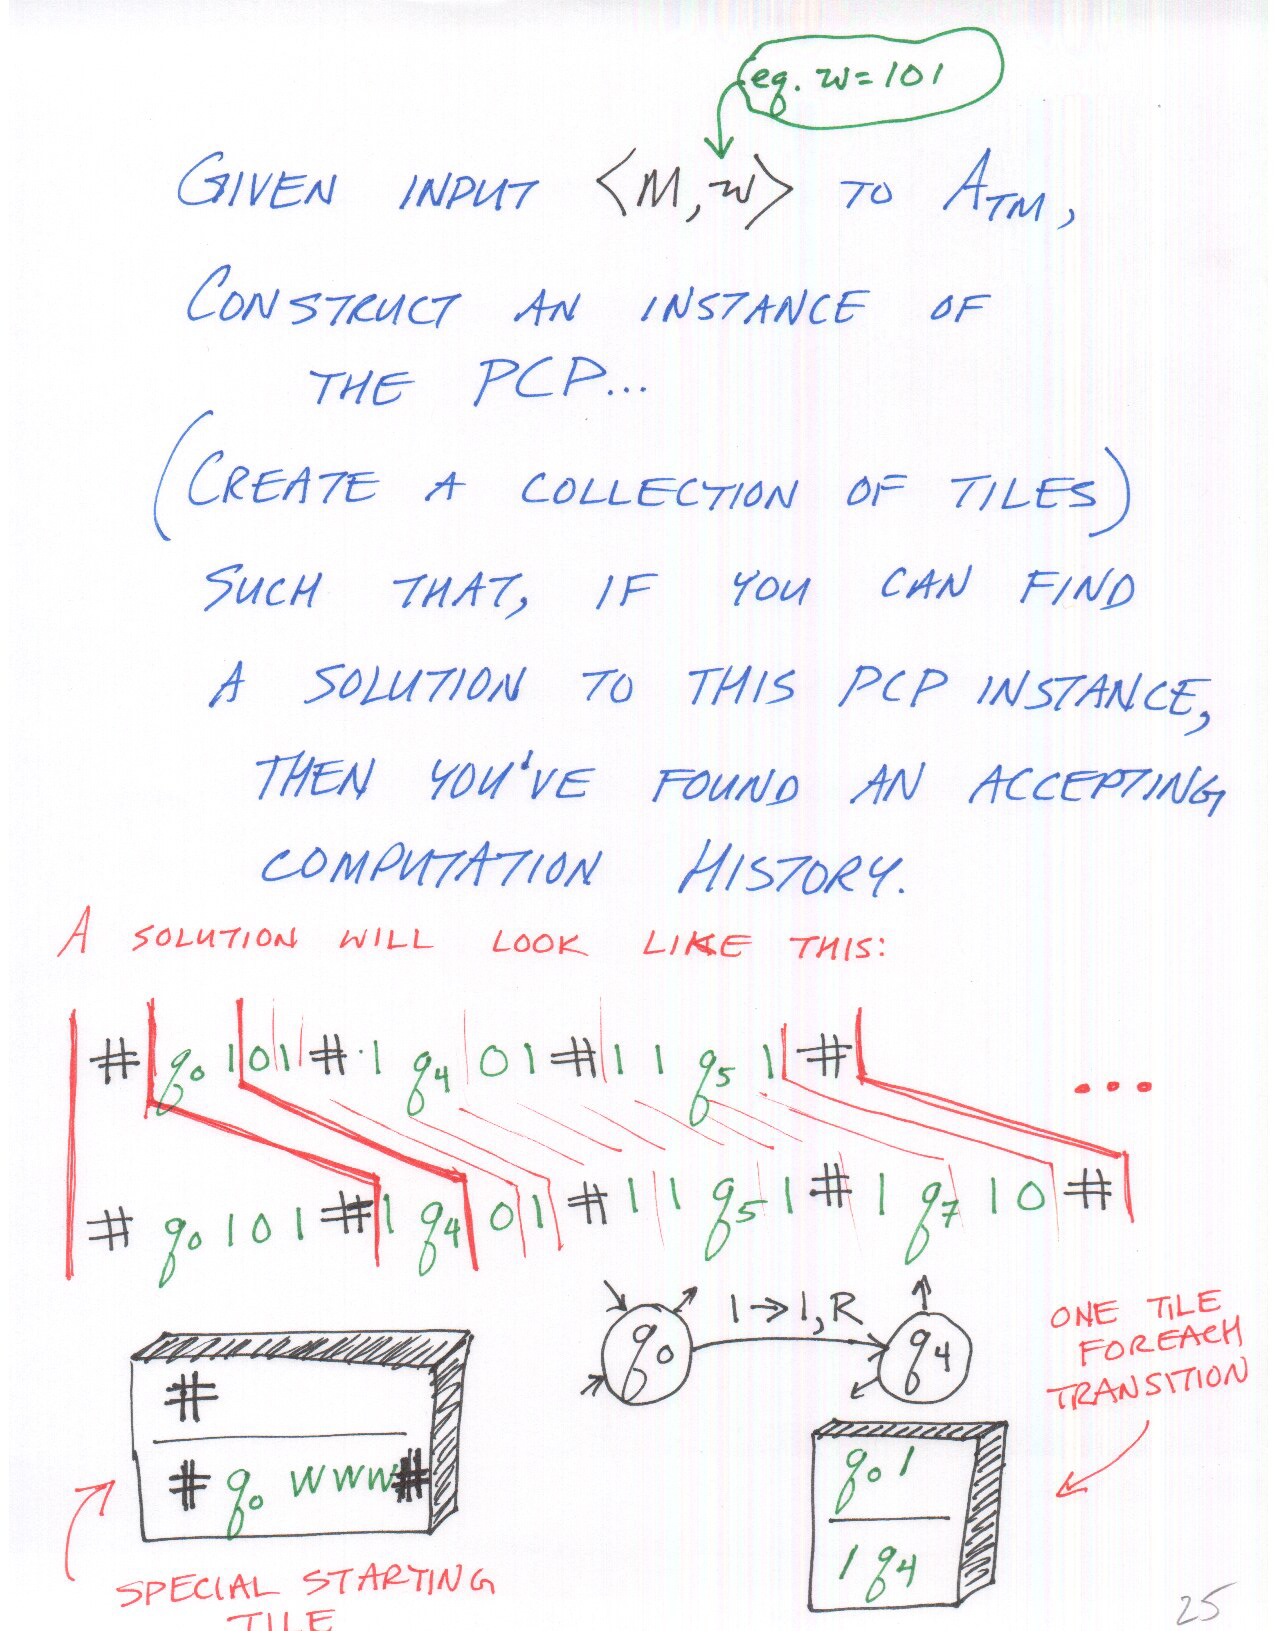 eg. w=101
GIVEN INPUT <M,w> TO ATM,
CONSTRUCT AN INSTANCE OF
THE PCP...
(CREATE A COLLECTION OF TILES)
SUCH THAT, IF YOU CAN FIND
A SOLUTION TO THIS PCP INSTANCE,
THEN YOU'VE FOUND AN ACCEPTING
COMPUTATION HISTORY.
A SOLUTION WILL LOOK LIKE THIS:
# q0 101 # 1 q4 01 # 11 q5 1 # ...
# q0 101 # 1 q4 01 # 11 q5 1 # 1 q7 10 #
q0 1→1,R q4
ONE TILE
FOREACH
TRANSITION
#
# q0 WWW#
q0 1
1 q4
SPECIAL STARTING
TILE
25